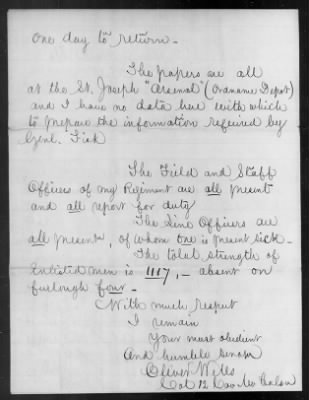 One day to return.
The papers are all
at the St. Joseph "Arsenal" (Ordnance Depot)
and I have no data here with which
to prepare the information required by
Genl. Fisk
The Field and Staff
Officers of my Regiment are all present
and all report for duty
The Line Officers are
all present, of whom one is present sick.
The total strength of
Enlisted men is 1117, - absent on
furlough four.
With much respect
I remain
Your most obedient
And humble servant
Oliver Wells
Col 12 Cav Mo